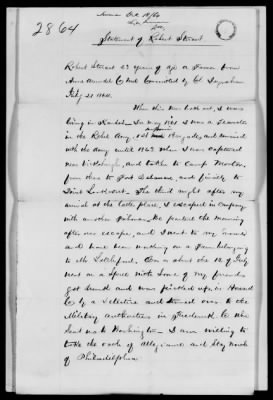 2864
Statement of Robert Stewart
Robert Stewart 23 years of age a Farmer from
Anne Arundel C Md Committed by Cl Ingraham
July 21 1864.
When this war broke out, I was
living in In May 1861 I was a
in the Rebel Army, 1st Brigade, and served
with the Army until 1863 when I was captured
near and taken to Camp Morton,
from there to Fort Delaware, and finally to
Point Lookout. The third night after my
arrival at the latter place, I escaped in Company
with another Prisoner. We parted the morning
after our escape, and I went to my
and have been working on a Farm belonging
to Mr On about the 12 of July
went on a Spree with some of my friends
got drunk and was picked up, in Howard
C by a detective and turned over to the
Military authorities in Frederick C who
sent me to Washington - I am willing to
take the oath of Allegiance and stay north
of Philadelphia